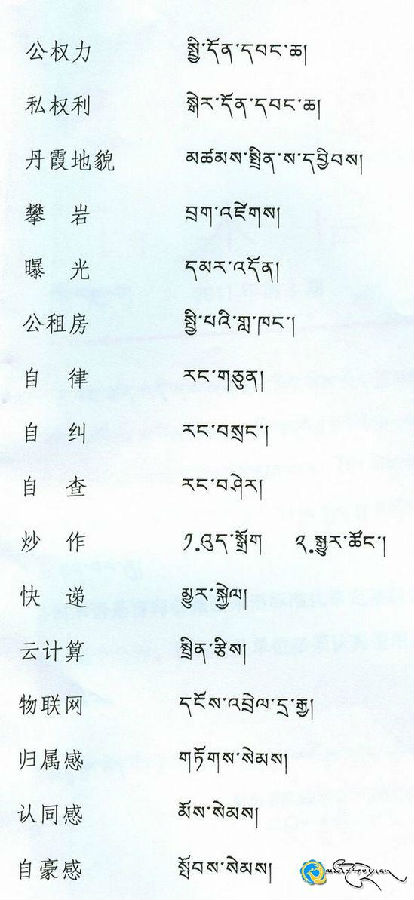 公权力 སྤྱི་དོན་དབང་ཆ།
私权利 སྒེར་དོན་དབང་ཆ།
丹霞地貌 མཚམས་སྤྲིན་ས་དབྱིབས།
攀 岩 བྲག་འཛེགས།
曝 光 དམར་འདོན།
公租房 སྤྱི་པའི་གླ་ཁང་།
自 律 རང་གཅུན།
自 纠 རང་བསྲང་།
自 查 རང་བཤེར།
炒 作 ༡.འུད་སྒྲོག ༢.སྤྱུར་ཚོང་།
快 递 མྱུར་སྐྱེལ།
云计算 སྤྲིན་རྩིས།
物联网 དངོས་འབྲེལ་དྲ་རྒྱ།
归属感 གཏོགས་སེམས།
认同感 མོས་སེམས།
自豪感 སྤོབས་སེམས།